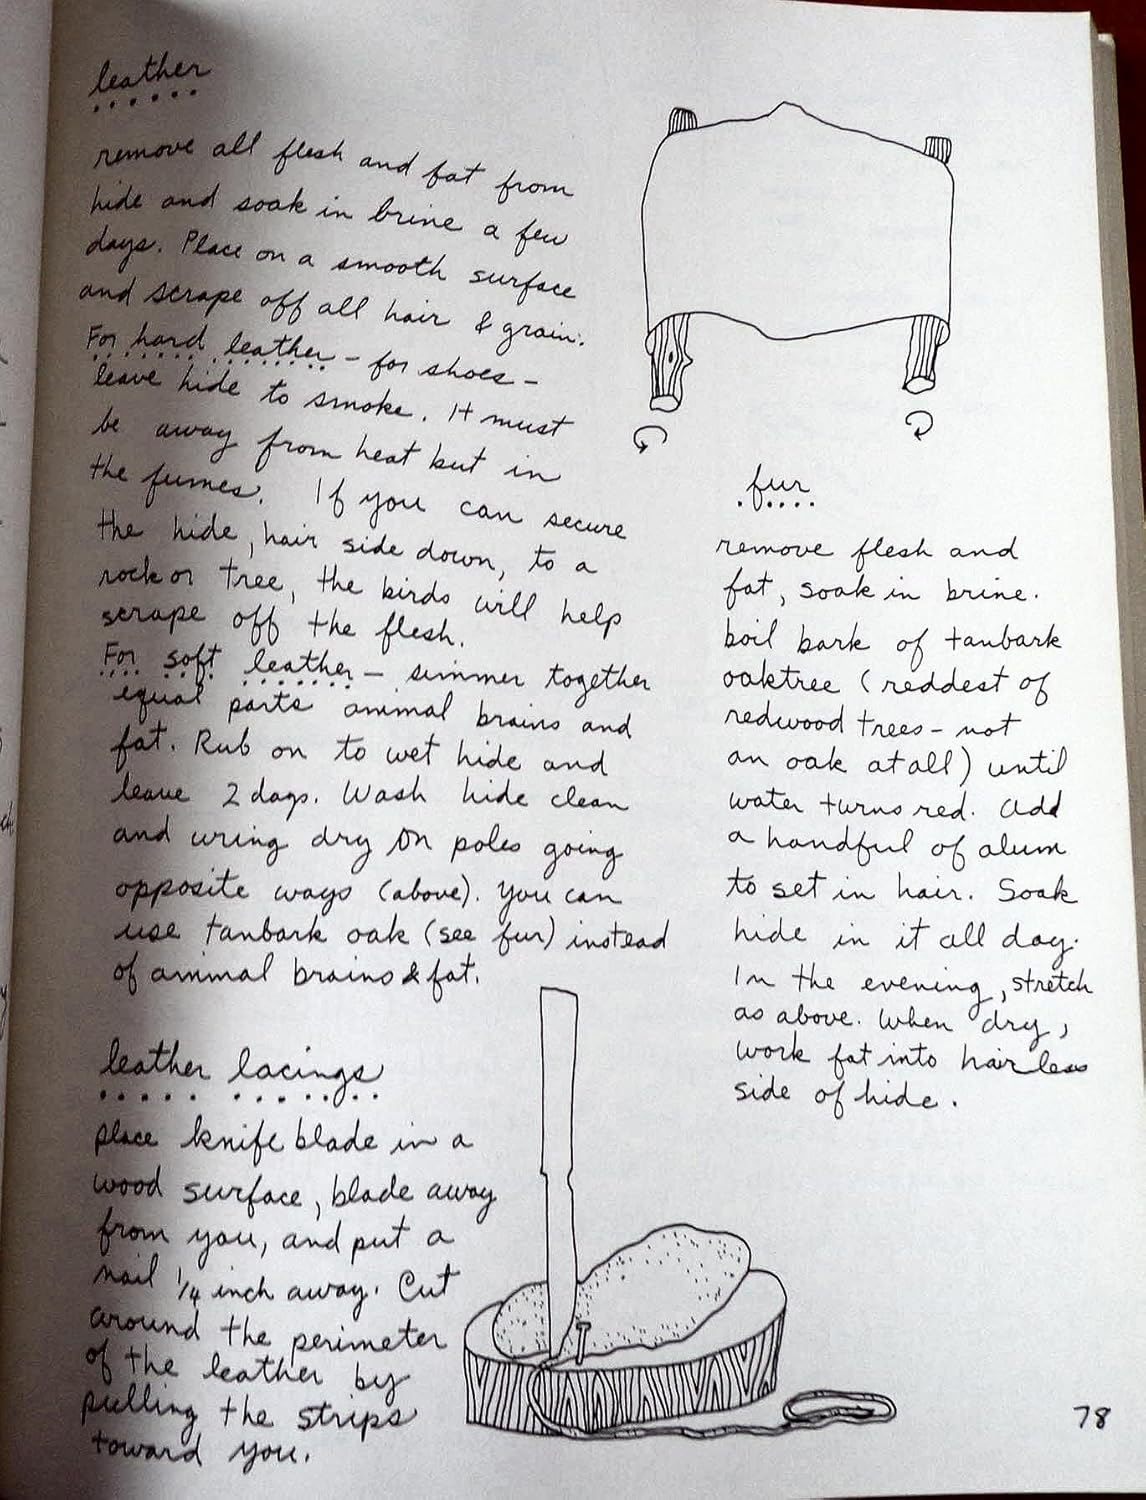 leather
remove all flesh and fat from
hide and soak in brine a few
days. Place on a smooth surface
and scrape off all hair & grain.
For hard leather - for shoes -
leave hide to smoke. It must
be away from heat but in
the fumes. If you can secure
the hide, hair side down, to a
rock or tree, the birds will help
scrape off the flesh.
For soft leather - simmer together
equal parts animal brains and
fat. Rub on to wet hide and
leave 2 days. Wash hide clean
and wring dry on poles going
opposite ways (above). You can
use tanbark oak (see fur) instead
of animal brains & fat.
leather lacings
place knife blade in a
wood surface, blade away
from you, and put a
nail 1/4 inch away. Cut
around the perimeter
of the leather by
pulling the strips
toward you.
fur
remove flesh and
fat, soak in brine.
boil bark of tanbark
oaktree (reddest of
redwood trees - not
an oak at all) until
water turns red. add
a handful of alum
to set in hair. Soak
hide in it all day.
In the evening, stretch
as above. When dry,
work fat into hairless
side of hide.
78